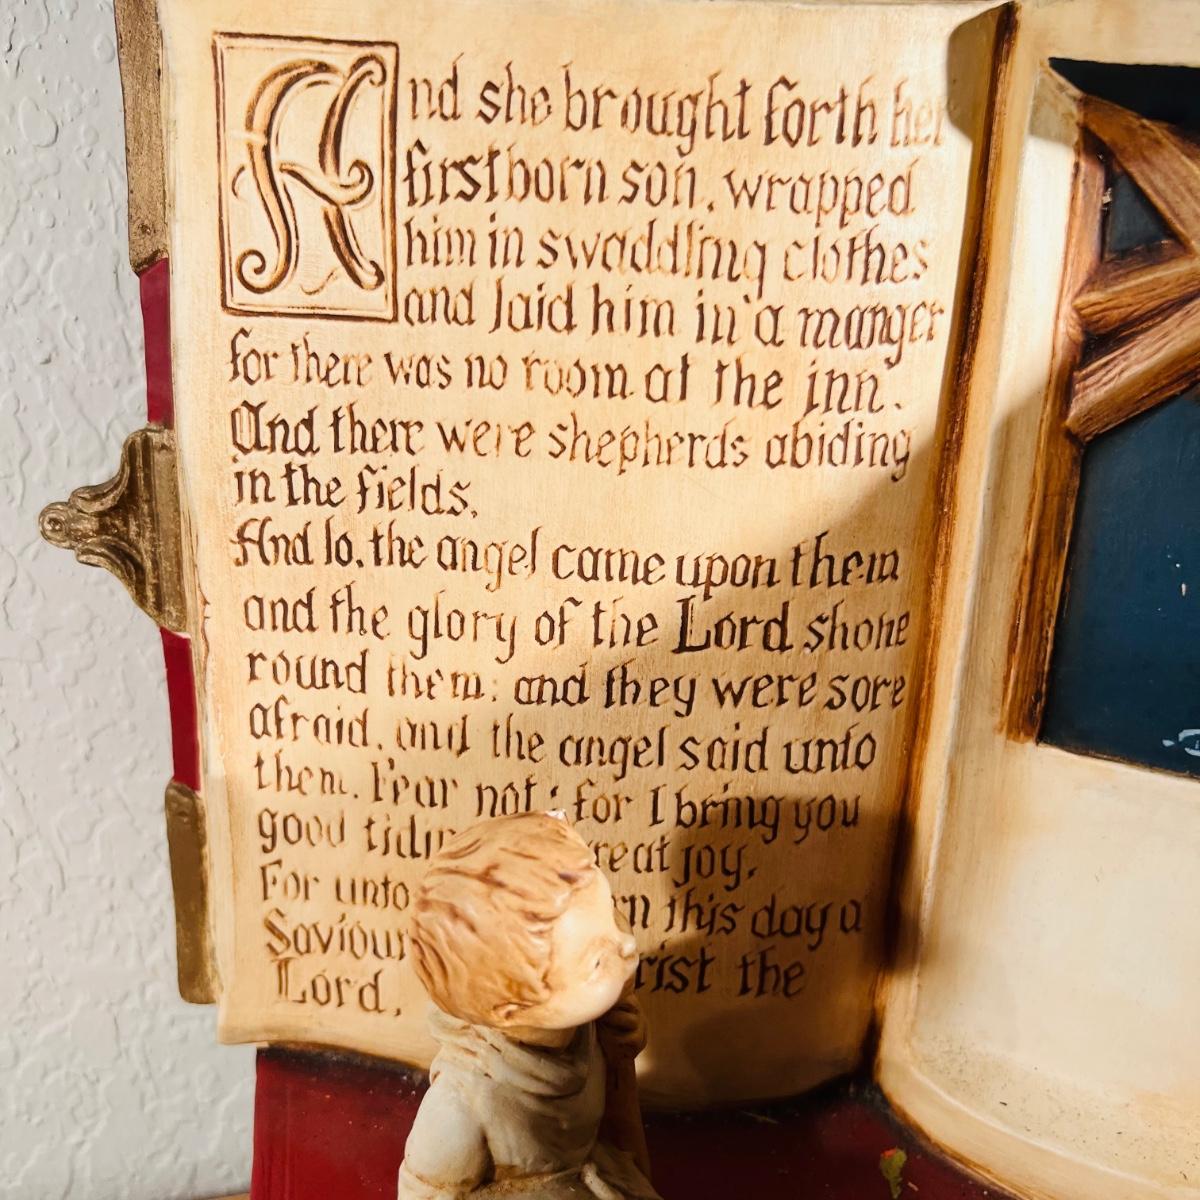 And she brought forth her
firstborn son, wrapped
him in swaddling clothes
and laid him in a manger
for there was no room at the inn.
And there were shepherds abiding
in the fields.
And lo, the angel came upon them
and the glory of the Lord shone
round them: and they were sore
afraid, and the angel said unto
them, Fear not: for I bring you
good joy.
For unto this day a
Saviour the
Lord.